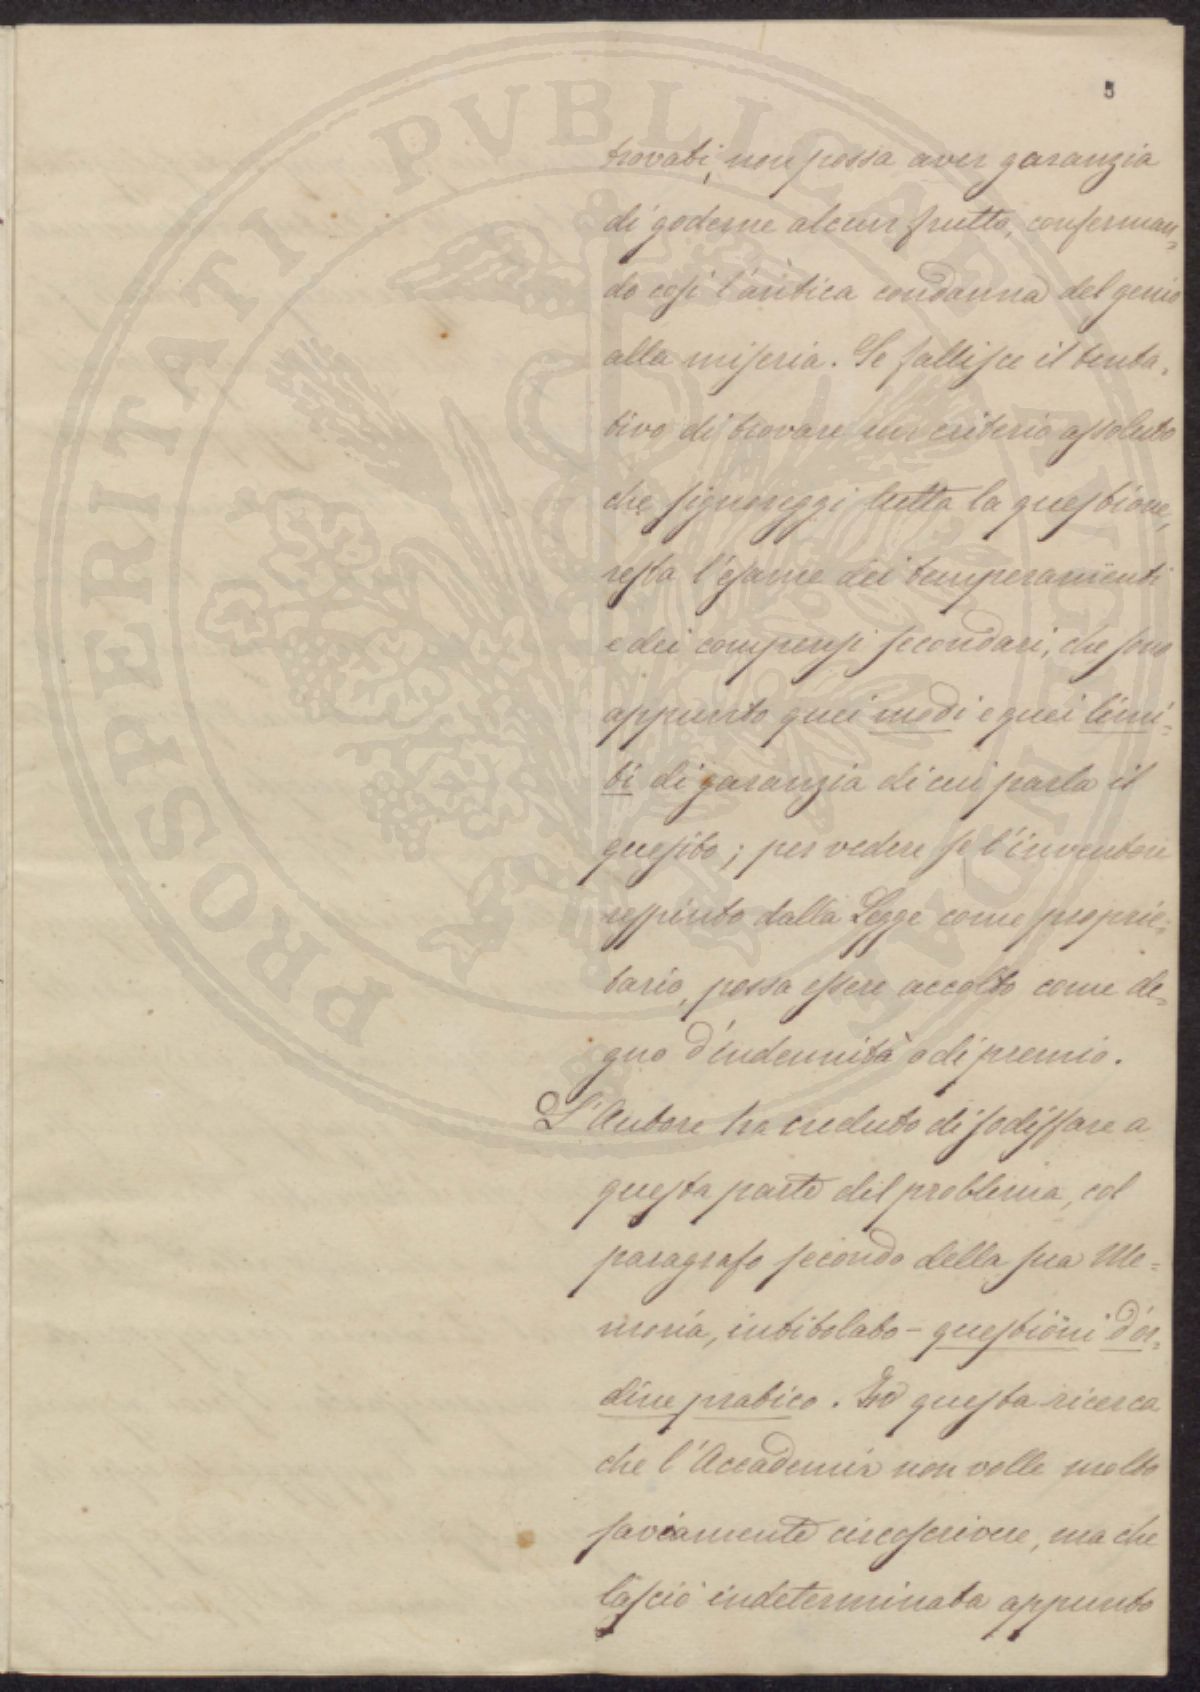 5
trovati, non possa aver garanzia
di goderne alcun frutto, conferman=
do così l'antica condanna del genio
alla miseria. Se fallisce il tenta=
tivo di trovare un criterio assoluto
che signoreggi tutta la questione,
resta l'esame dei temperamenti
e dei compensi secondari, che sono
appunto quei modi e quei limi=
ti di garanzia di cui parla il
quesito; per vedere se l'inventore
respinto dalla Legge come proprie=
tario, possa essere accolto come de=
gno d'indennità o di premio.
L'Autore ha creduto di sodisfare a
questa parte del problema, col
paragrafo secondo della sua Me=
moria, intitolato - questioni d'or=
dine pratico. In questa ricerca
che l'Accademia non volle molto
saviamente circoscrivere, ma che
lasciò indeterminata appunto
PROSPERITATI PVBLICAE AVGENDAE